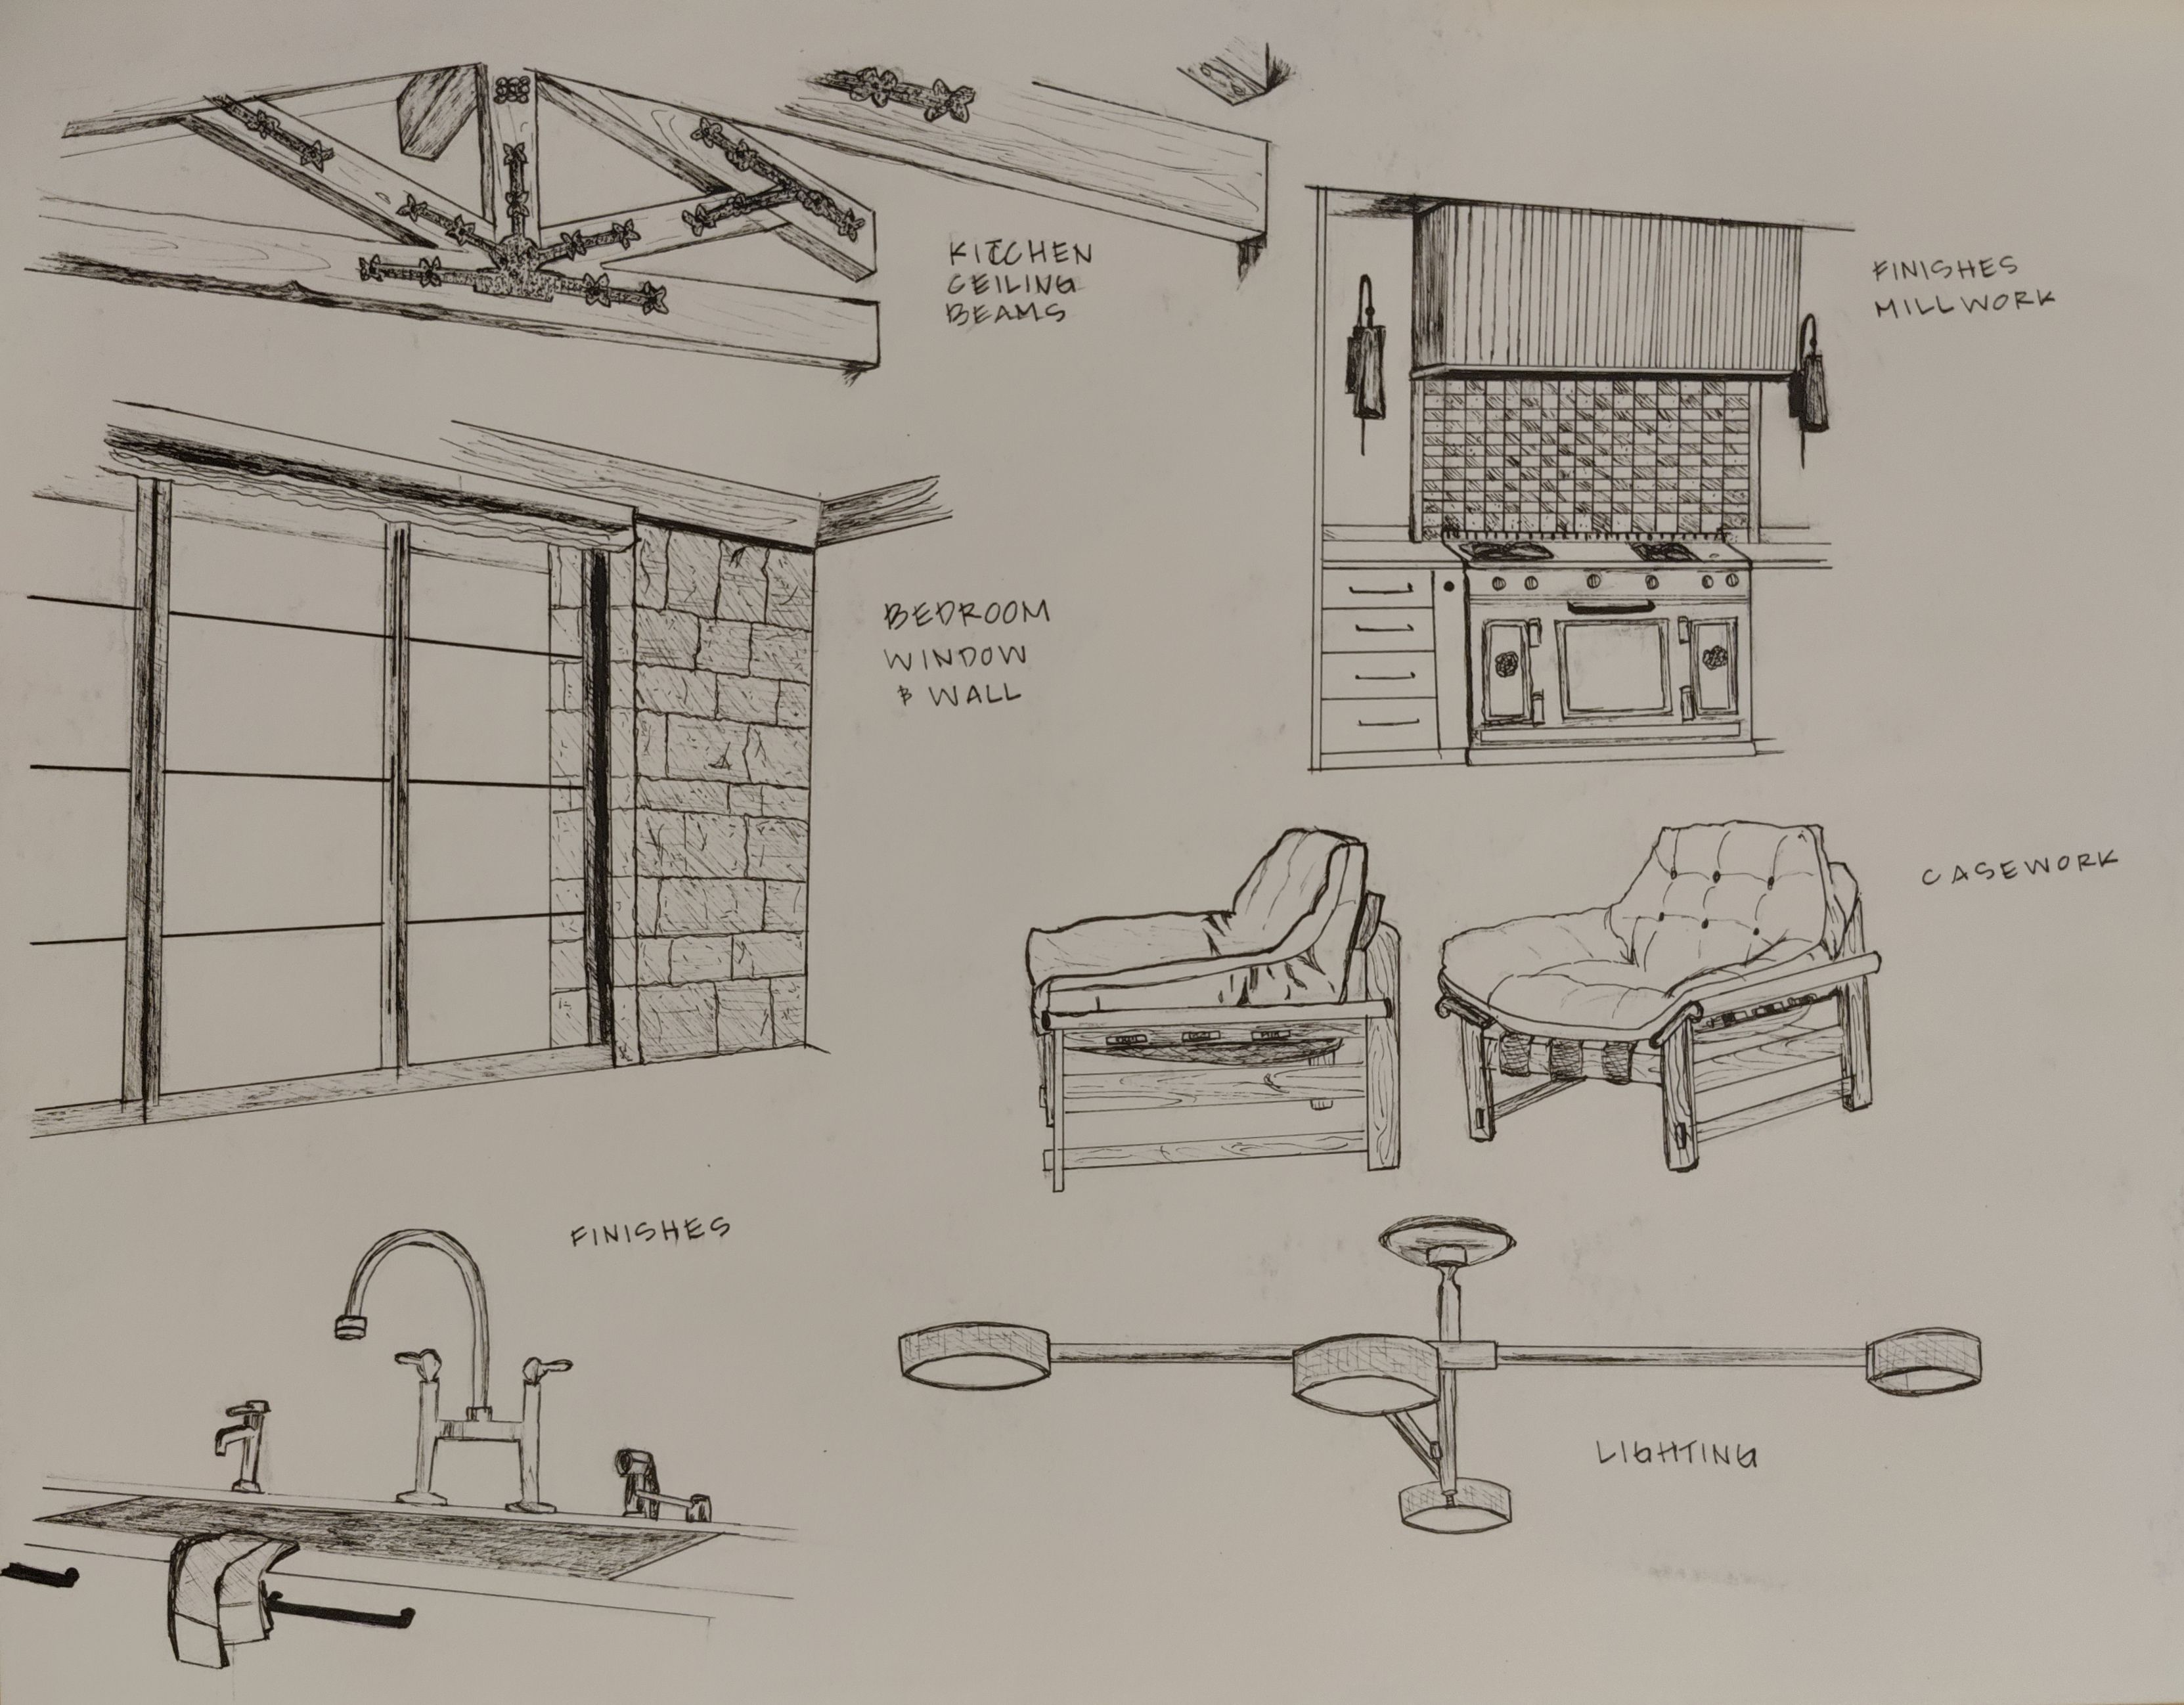 KITCHEN
CEILING
BEAMS
FINISHES
MILLWORK
BEDROOM
WINDOW
& WALL
CASEWORK
FINISHES
LIGHTING